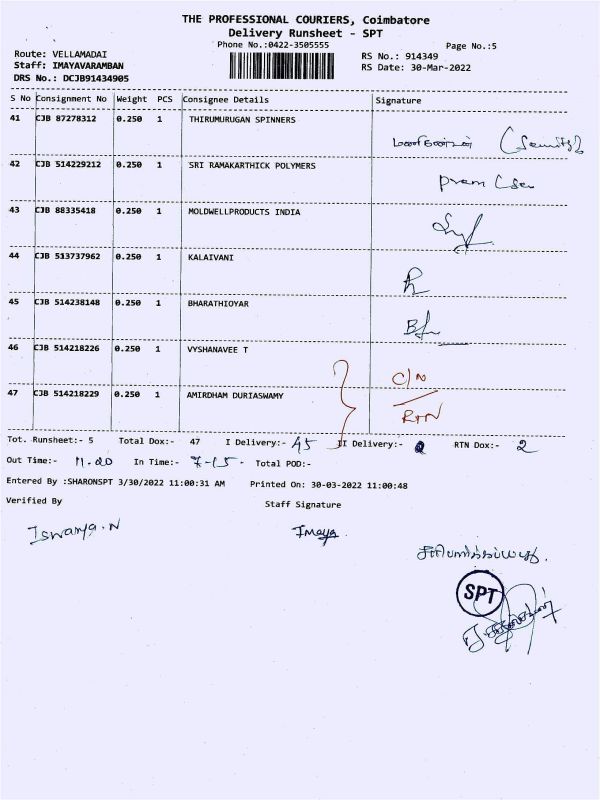 THE PROFESSIONAL COURIERS, Coimbatore
Delivery Runsheet - SPT
Phone No.:0422-3505555 Page No.:5
Route: VELLAMADAI RS No.: 914349
Staff: IMAYAVARAMBAN RS Date: 30-Mar-2022
DRS No.: DCJB91434905
S No Consignment No Weight PCS Consignee Details Signature
41 CJB 87278312 0.250 1 THIRUMURUGAN SPINNERS
42 CJB 514229212 0.250 1 SRI RAMAKARTHICK POLYMERS
Prem
43 CJB 88335418 0.250 1 MOLDWELLPRODUCTS INDIA
44 CJB 513737962 0.250 1 KALAIVANI
45 CJB 514238148 0.250 1 BHARATHIOYAR
46 CJB 514218226 0.250 1 VYSHANAVEE T
C/N
47 CJB 514218229 0.250 1 AMIRDHAM DURIASWAMY
RTN
Tot. Runsheet:- 5 Total Dox:- 47 I Delivery:- 45 II Delivery:- RTN Dox:- 2
Out Time:- 11.20 In Time:- 7-15- Total POD:-
Entered By :SHARONSPT 3/30/2022 11:00:31 AM Printed On: 30-03-2022 11:00:48
Verified By Staff Signature
Iswarya.N Imaya
SPT